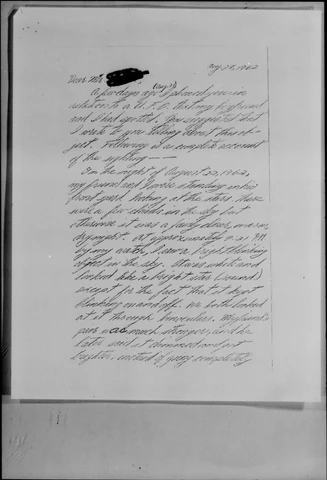 Aug 28, 1962
Dear Mr.
A few days ago (Aug 23) I phoned you in
relation to a U.F.O. that my friend
and I had spotted. You suggested that
I write to you telling about this ob-
ject. Following is a complete account
of the sighting ——
On the night of August 22, 1962,
my friend and I were standing in his
front yard looking at the stars. There
were a few clouds in the sky but
otherwise it was a fairly clear, warm,
dry night. At approximately 9:21 PM
by my watch, I saw a bright blinking
object in the sky. It was white and
looked like a bright star (round)
except for the fact that it kept
blinking on and off. We both looked
at it through binoculars. My friend's
pair was much stronger, and he
later said it dimmed and got
brighter, instead of going completely